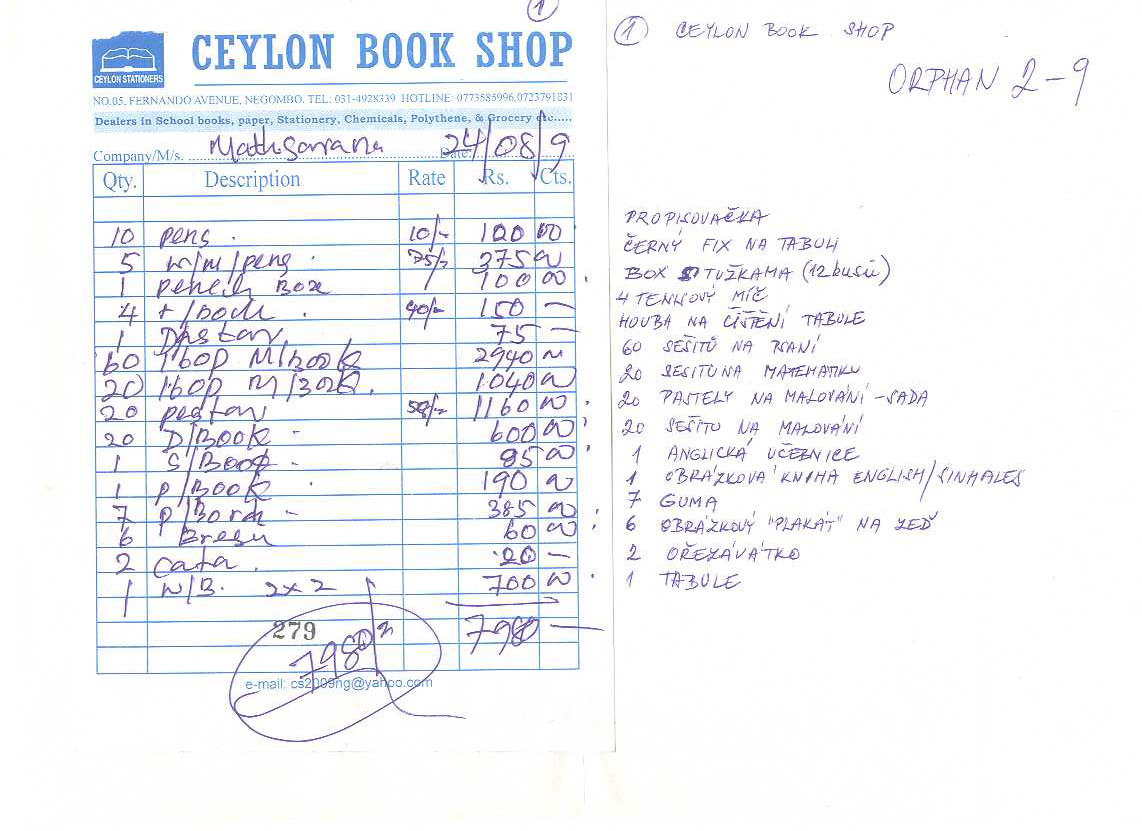 1
CEYLON BOOK SHOP
CEYLON STATIONERS
NO.05, FERNANDO AVENUE, NEGOMBO. TEL: 031-4928339 HOTLINE: 0773585996,0723791831
Dealers in School books, paper, Stationery, Chemicals, Polythene, & Grocery etc.....
Company/M/s. Mathsarana Date: 24/08/9
Qty. Description Rate Rs. Cts.
10 pens. 10/- 100 00
5 w/m/pens. 75/- 375 00
1 Box 100 00
4 40/- 150 —
1 75 —
60 160p M/Book 2940 00
20 160p M/Book. 1040 00
20 58/- 1160 00
20 D/Book - 600 00
1 S/Book - 85 00
1 P/Book . 190 00
7 - 385 00
6 60 00
2 20 —
1 W/B. 2x2 700 00
7980 —
279
7980
e-mail: cs2009ng@yahoo.com
1 CEYLON BOOK SHOP
ORPHAN 2-9
PROPISOVAČKA
ČERNÝ FIX NA TABULI
BOX S TUŽKAMA (12 kusů)
4 TENISOVÝ MÍČ
HOUBA NA ČIŠTĚNÍ TABULE
60 SEŠITŮ NA PSANÍ
20 SESITU NA MATEMATIKU
20 PASTELY NA MALOVÁNÍ - SADA
20 SEŠITU NA MALOVÁNÍ
1 ANGLICKÁ UČEBNICE
1 OBRÁZKOVÁ KNIHA ENGLISH/SINHALES
7 GUMA
6 OBRÁZKOVÝ "PLAKÁT" NA ZEĎ
2 OŘEZÁVÁTKO
1 TABULE